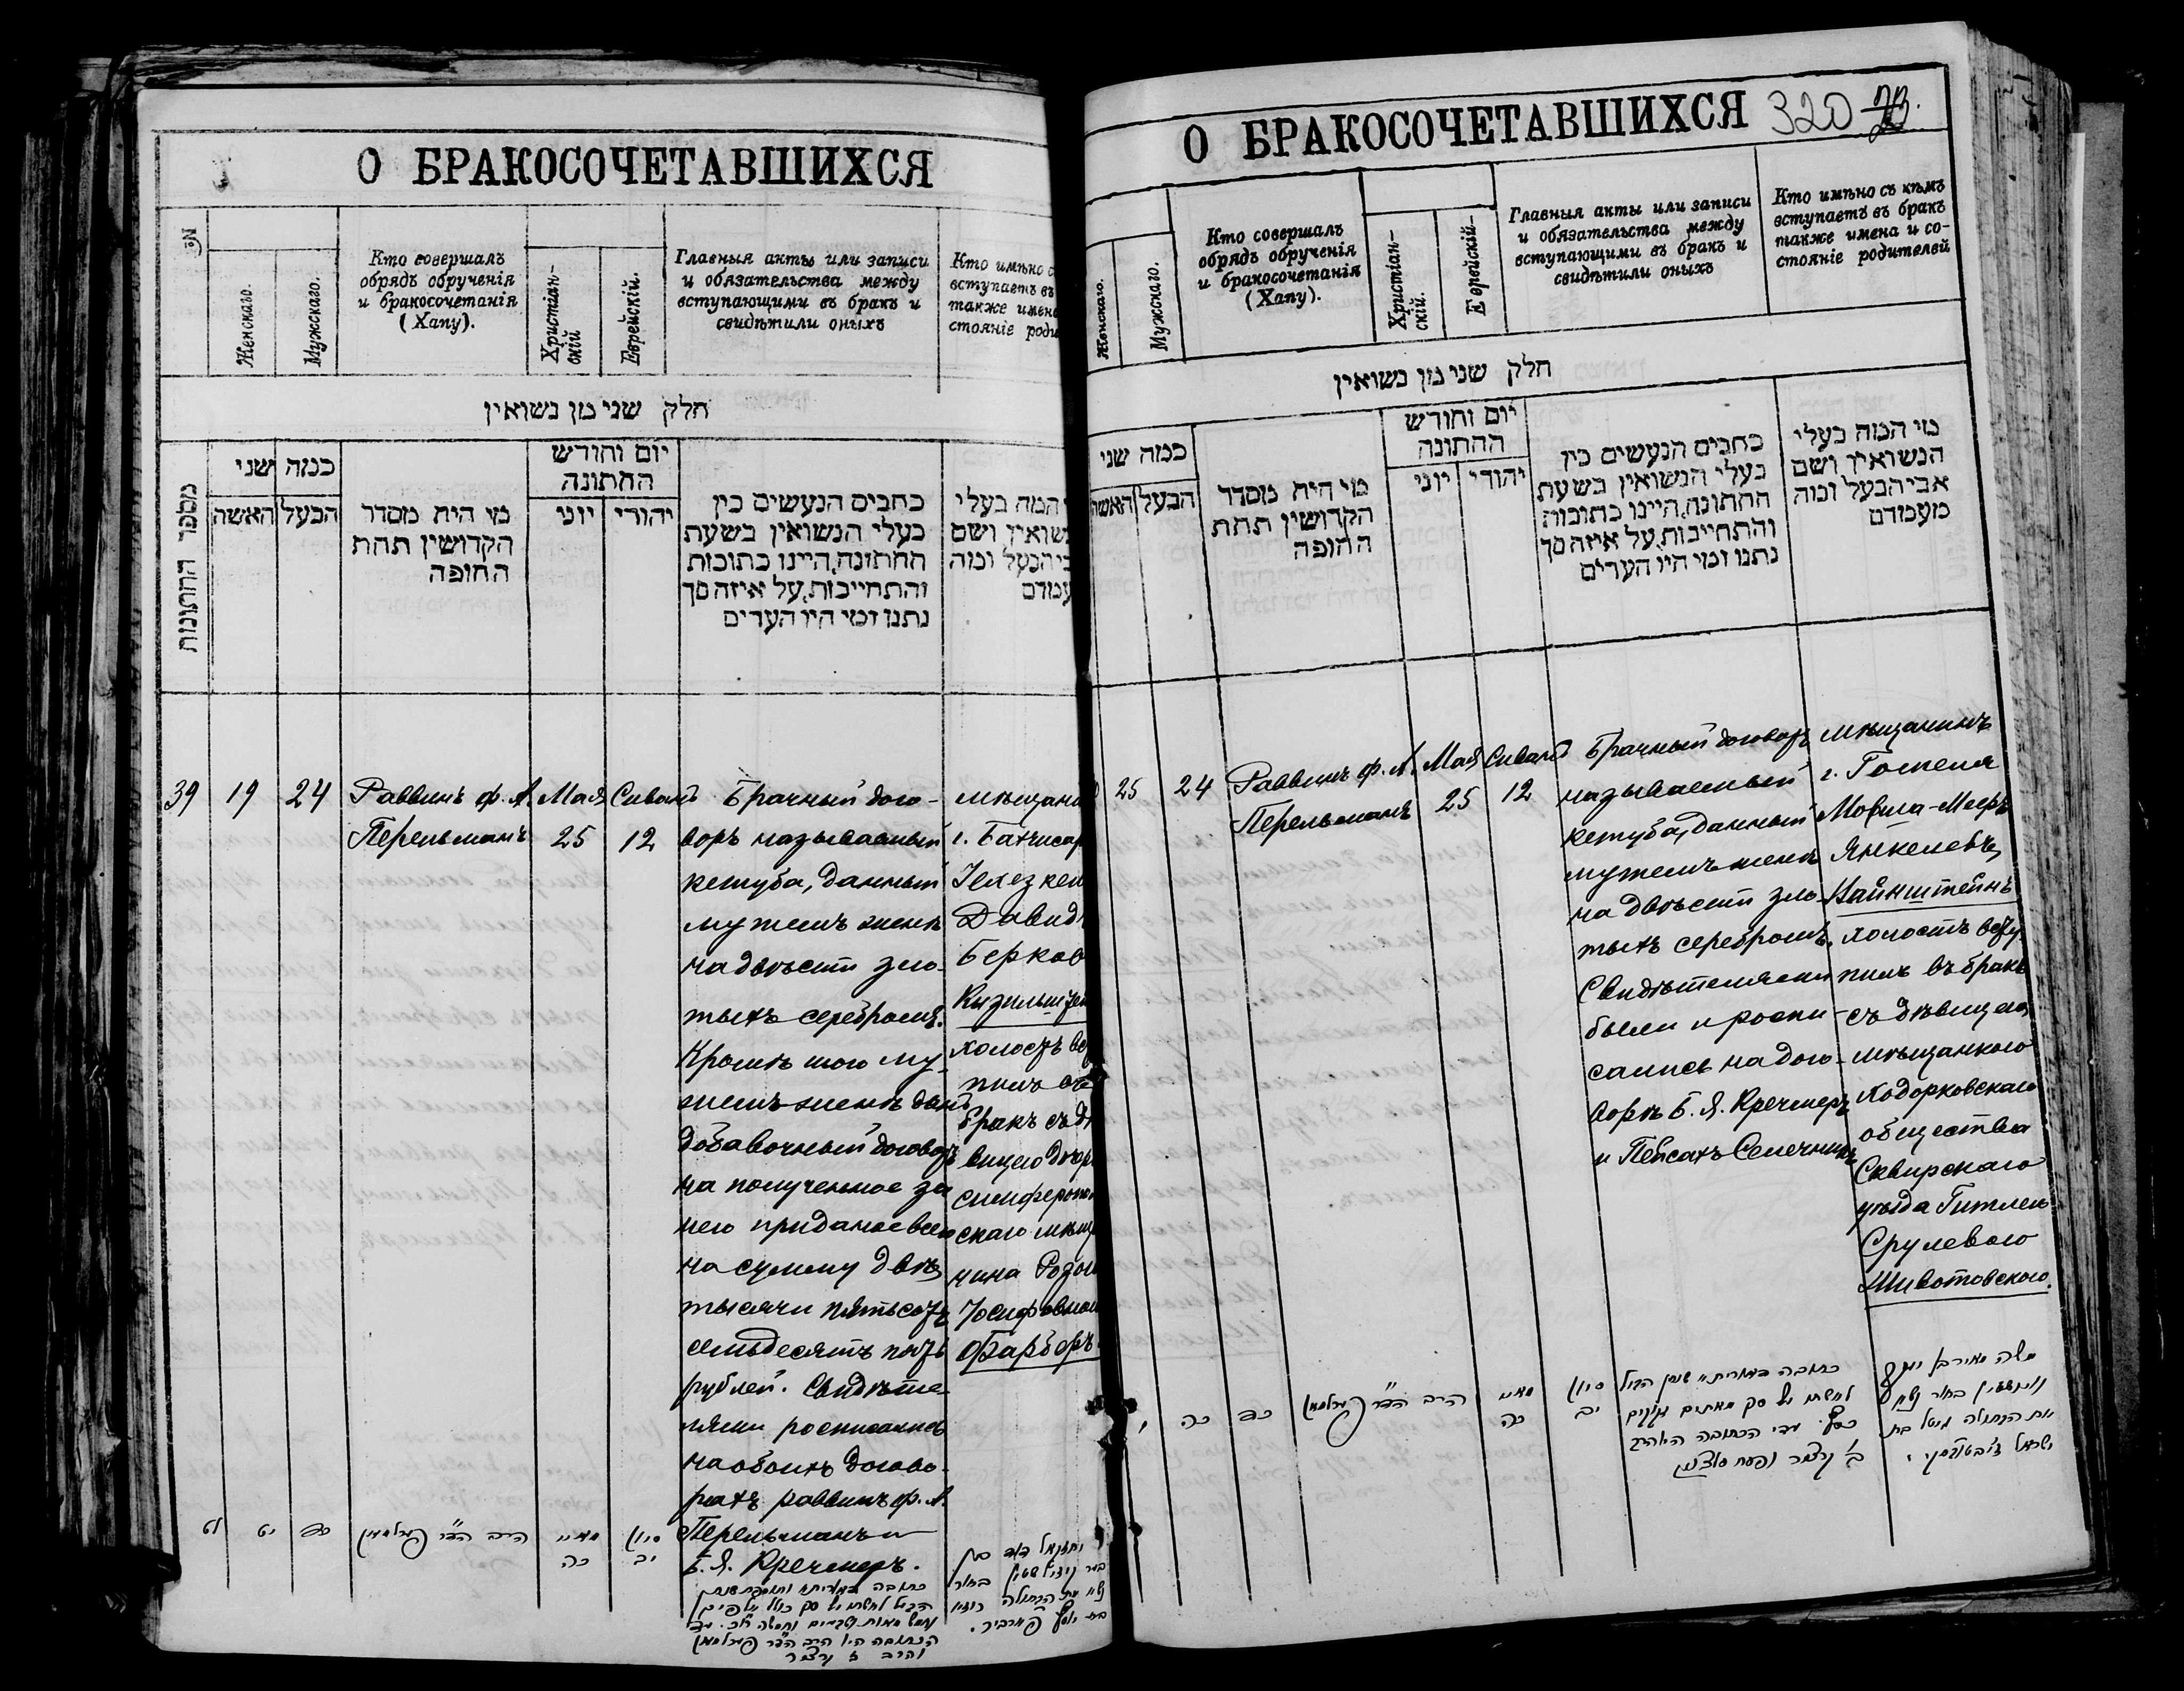 О БРАКОСОЧЕТАВШИХСЯ
№
Женскаго.
Мужскаго.
Кто совершалъ
обрядъ обрученія
и бракосочетанія
(Хапу).
Христіан-
скій
Еврейскій.
Главныя акты или записи
и обязательства между
вступающими въ бракъ и
свидѣтили оныхъ
Кто имѣно с
вступаетъ въ
также имена
стояніе роди
חלק שני מן נשואין
מספר החתונות
כמה שני
האשה
הבעל
מי היה מסדר
הקדושין תחת
החופה
יום וחודש
החתונה
יוני
יהודי
כתבים הנעשים בין
בעלי הנשואין בשעת
החתונה, היינו כתובות
והתחייבות, על איזה סך
נתנו ומי היו העדים
המה בעלי
שואין ושם
בי הבעל ומה
עמדם
39
19
24
Раввинъ ф. А.
Перельманъ
Мая
25
Сиванъ
12
Брачный дого-
воръ называемый
кетуба, данный
мужемъ женѣ
на двѣсти зло-
тыхъ серебромъ.
Кромѣ того му-
жемъ женѣ данъ
добавочный договоръ
на полученное за
нею приданое всего
на сумму двѣ
тысячи пятьсотъ
семьдесятъ пять
рублей. Свидѣте-
лями росписались
на обоихъ догово-
рахъ раввинъ ф. А.
Перельманъ и
Б. Я. Кречмеръ.
мѣщани
г. Бахчисар
Іехезкел
Давид
Берков
Кизильштей
холостъ вс
пилъ въ
бракъ съ дѣ
вицею дочер
симферопол
скаго мѣщ
нина Розою
Іосифовною
Фарберъ.
לט
יט
כד
הרב
מאי
כה
סיון
יב
О БРАКОСОЧЕТАВШИХСЯ
320
Женскаго.
Мужскаго.
Кто совершалъ
обрядъ обрученія
и бракосочетанія
(Хапу).
Христіан-
скій.
Еврейскій-
Главныя акты или записи
и обязательства между
вступающими въ бракъ и
свидѣтили оныхъ
Кто имѣно съ кѣмъ
вступаетъ въ бракъ
также имена и со-
стояніе родителей
חלק שני מן נשואין
כמה שני
האשה
הבעל
מי היה מסדר
הקדושין תחת
החופה
יום וחודש
החתונה
יוני
יהודי
כתבים הנעשים בין
בעלי הנשואין בשעת
החתונה, היינו כתובות
והתחייבות, על איזה סך
נתנו ומי היו העדים
מי המה בעלי
הנשואין ושם
אבי הבעל ומה
מעמדם
25
24
Раввинъ ф. А.
Перельманъ
Мая
25
Сиванъ
12
Брачный договоръ
называемый
кетуба, данный
мужемъ женѣ
на двѣсти зло-
тыхъ серебромъ.
Свидѣтелями
были и роспи-
сались на дого-
ворѣ Б. Я. Кречмеръ
и Пейсахъ Селечникъ
мѣщанинъ
г. Гомеля
Мовша-Мееръ
Янкелевъ
Вайнштейнъ
холостъ всту-
пилъ въ бракъ
съ дѣвицею
мѣщанкою
Ходорковскаго
общества
Сквирскаго
уѣзда Гитлею
Срулевою
Животовскою.
כה
כד
הרב
מאי
כה
סיון
יב